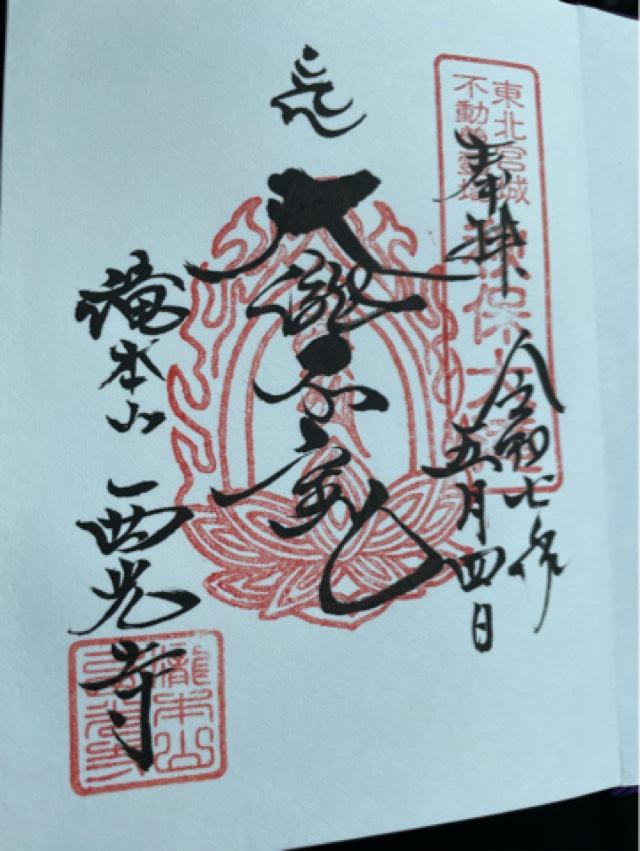 東北宮城
不動
保大
奉拝
令和七年
五月四日
大瀧不動
滝本山 西光寺
瀧本山